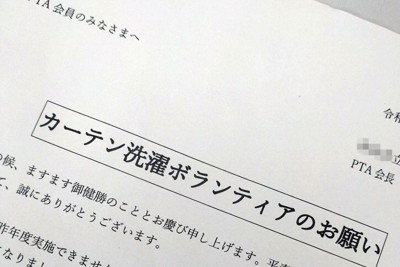 PTA会員のみなさまへ
令和
立
PTA会長
カーテン洗濯ボランティアのお願い
の候、ますます御健勝のこととお慶び申し上げます。平
て、誠にありがとうございます。
昨年度実施できません
になりまし